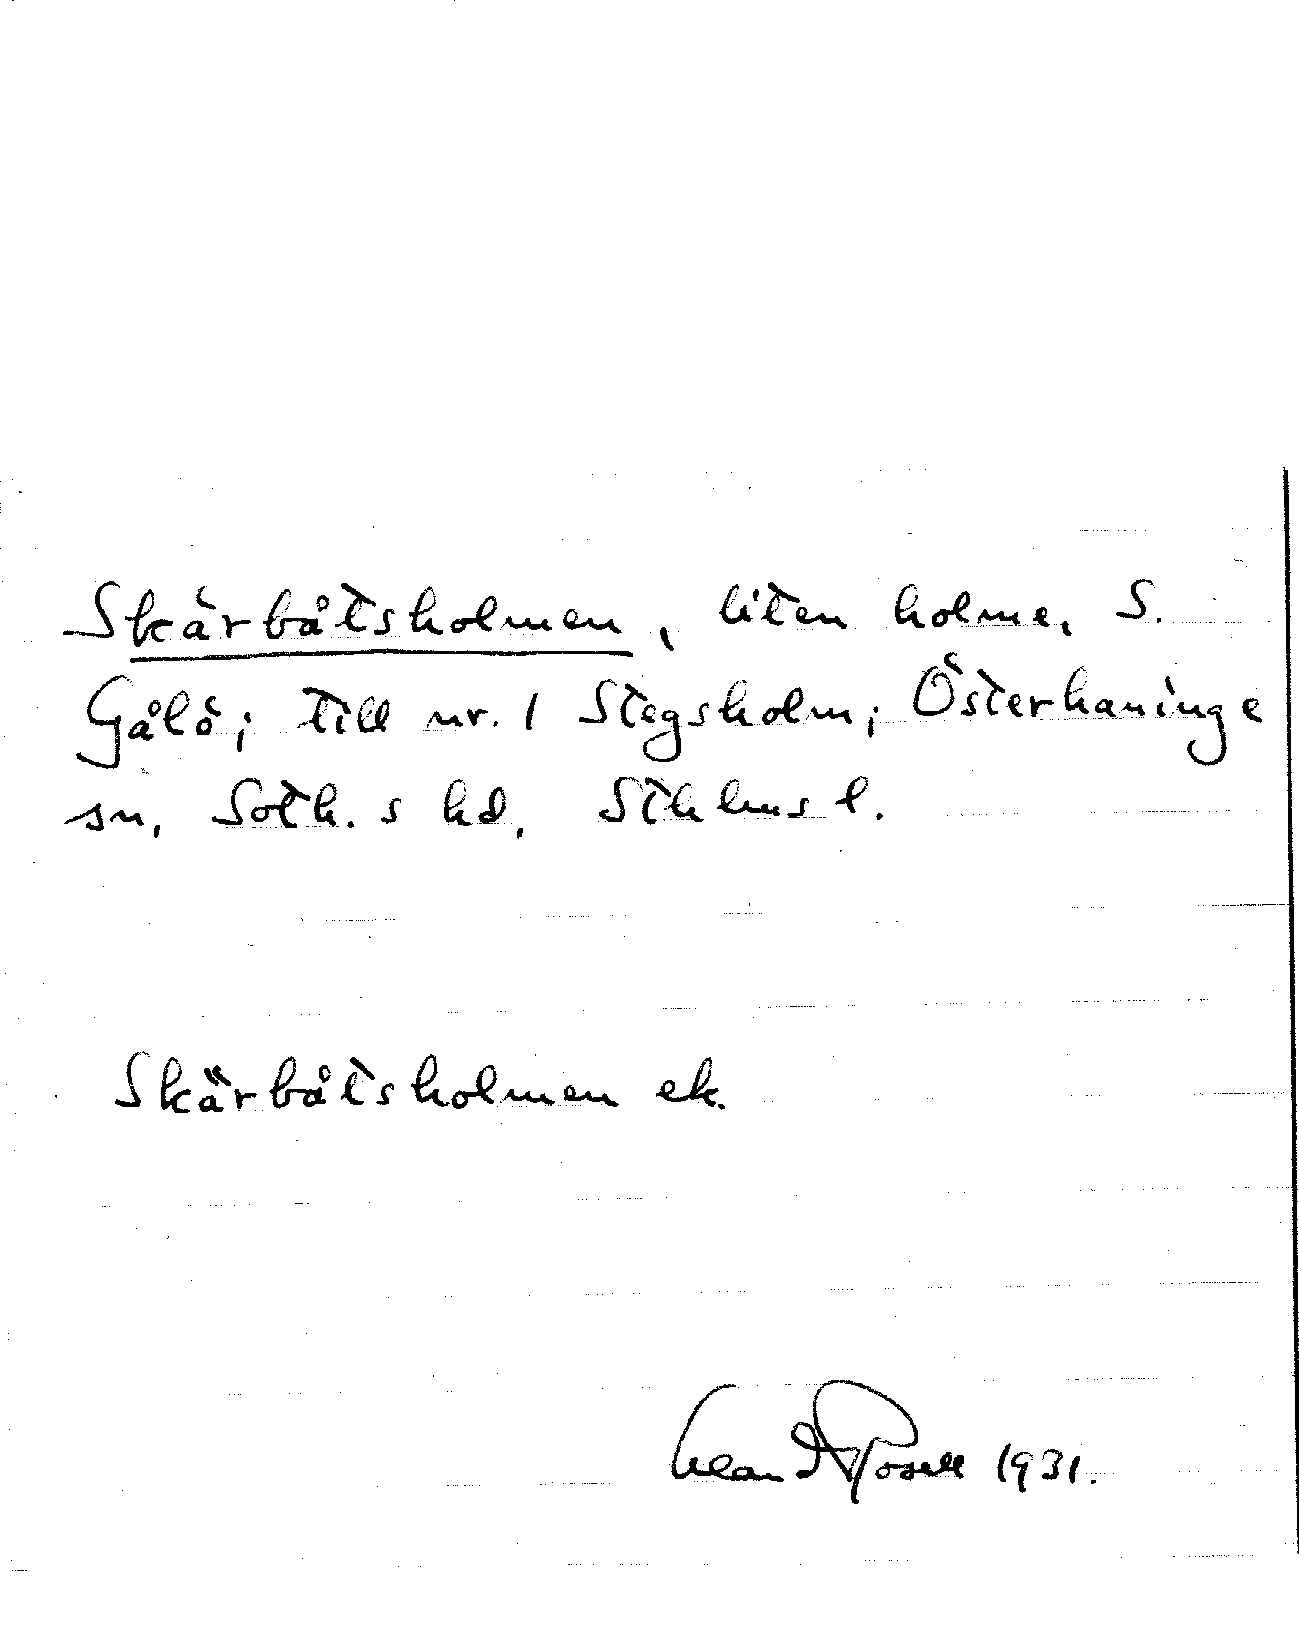 Skärbåtsholmen, liten holme, S.
Gålö; till nr. 1 Stegsholm; Österhaninge
sn, Soth.s hd, Sthlms l.
Skärbåtsholmen ek.
1931.